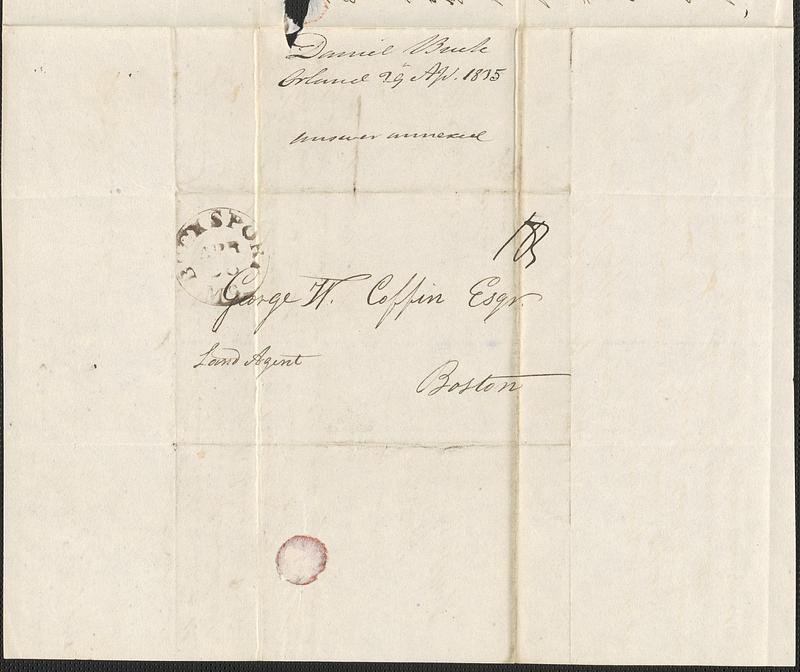 Daniel Buck
Orland 29 Ap. 1835
answer annexed
BUCKSPORT
APR
30
Me.
18
George W. Coffin Esqr.
Land Agent
Boston